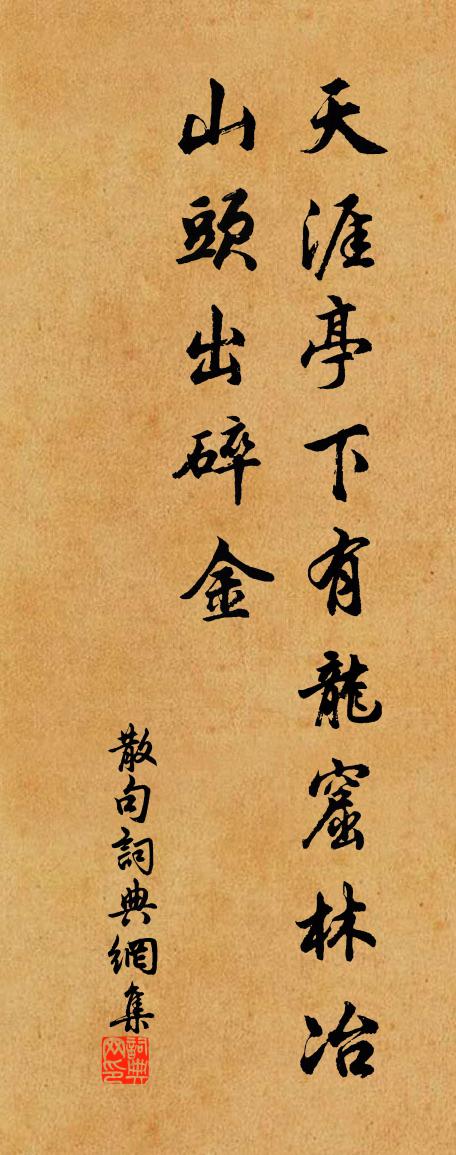 天涯亭下有龍窟林冶
山頭出碎金
散句詞典網集
詞典網印